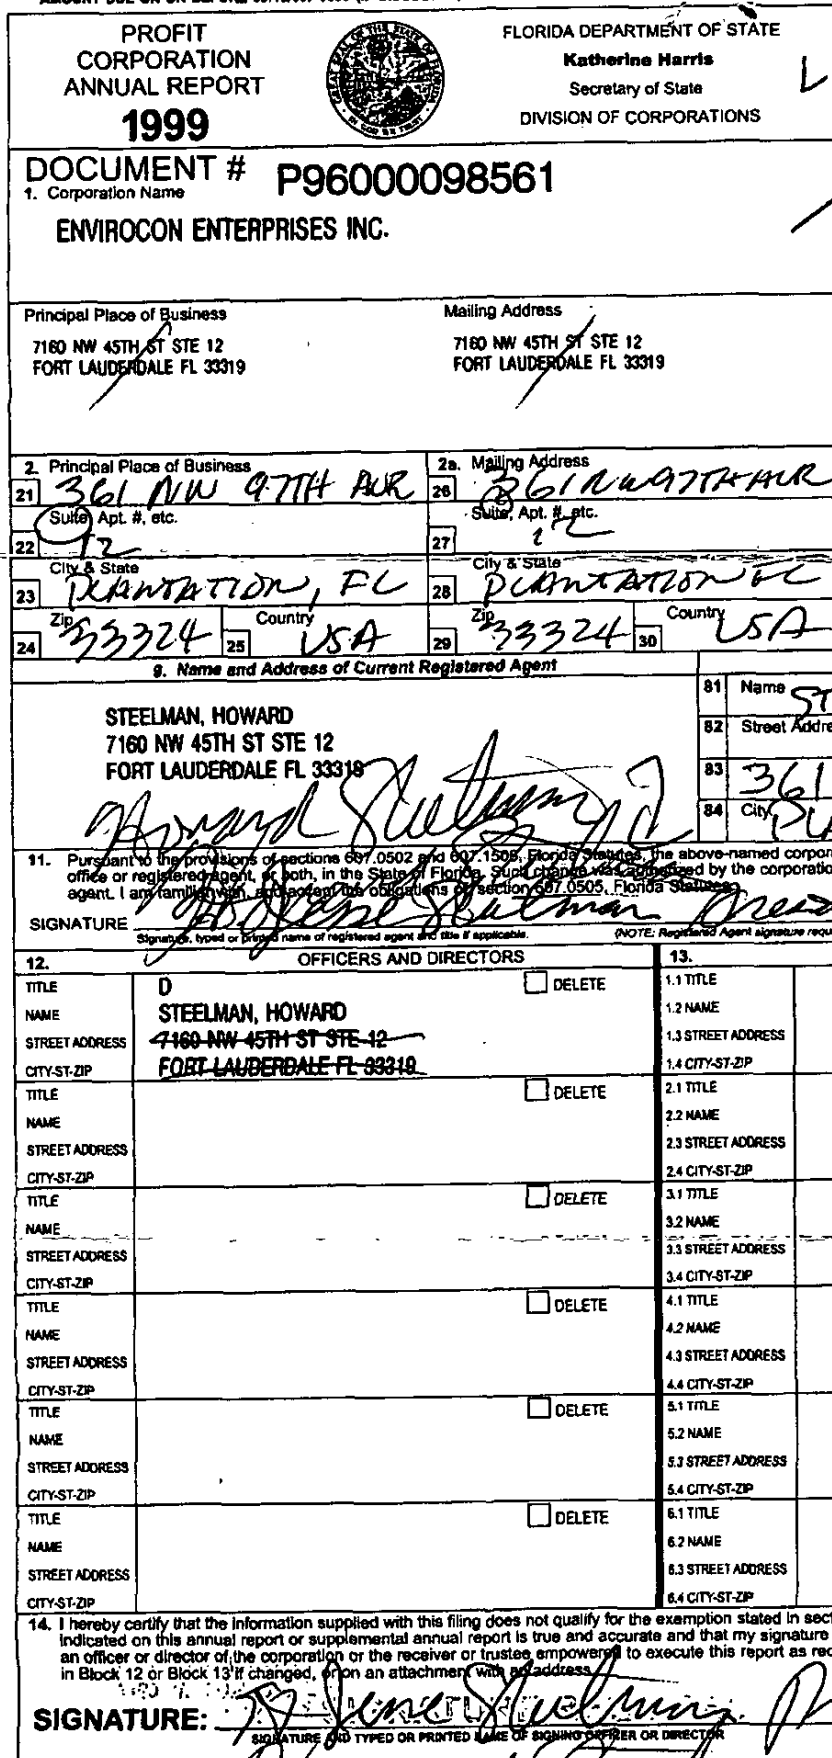 PROFIT
CORPORATION
ANNUAL REPORT
1999
FLORIDA DEPARTMENT OF STATE
Katherine Harris
Secretary of State
DIVISION OF CORPORATIONS
DOCUMENT # P96000098561
1. Corporation Name
ENVIROCON ENTERPRISES INC.
Principal Place of Business
7160 NW 45TH ST STE 12
FORT LAUDERDALE FL 33319
Mailing Address
7160 NW 45TH ST STE 12
FORT LAUDERDALE FL 33319
2. Principal Place of Business
21 361 NW 97TH AVR
2a. Mailing Address
26 361 NW 97TH AVR
Suite, Apt. #, etc.
22 12
Suite, Apt. #, etc.
27 12
City & State
23 PLANTATION, FL
City & State
28 PLANTATION FL
Zip
24 33324
Country
25 USA
Zip
29 33324
Country
30 USA
9. Name and Address of Current Registered Agent
STEELMAN, HOWARD
7160 NW 45TH ST STE 12
FORT LAUDERDALE FL 33319
81 Name ST
82 Street Addre
83 361
84 City
Howard Steelman
11. Pursuant to the provisions of sections 607.0502 and 607.1508, Florida Statutes, the above-named corpor
office or registered agent, or both, in the State of Florida. Such change was authorized by the corporatio
agent. I am familiar with, and accept the obligations of section 607.0505, Florida Statutes.
SIGNATURE
Signature, typed or printed name of registered agent and title if applicable.
(NOTE: Registered Agent signature requ
12. OFFICERS AND DIRECTORS
13.
TITLE D DELETE
NAME STEELMAN, HOWARD
STREET ADDRESS 7160 NW 45TH ST STE 12
CITY-ST-ZIP FORT LAUDERDALE FL 33319
1.1 TITLE
1.2 NAME
1.3 STREET ADDRESS
1.4 CITY-ST-ZIP
TITLE DELETE
NAME
STREET ADDRESS
CITY-ST-ZIP
2.1 TITLE
2.2 NAME
2.3 STREET ADDRESS
2.4 CITY-ST-ZIP
TITLE DELETE
NAME
STREET ADDRESS
CITY-ST-ZIP
3.1 TITLE
3.2 NAME
3.3 STREET ADDRESS
3.4 CITY-ST-ZIP
TITLE DELETE
NAME
STREET ADDRESS
CITY-ST-ZIP
4.1 TITLE
4.2 NAME
4.3 STREET ADDRESS
4.4 CITY-ST-ZIP
TITLE DELETE
NAME
STREET ADDRESS
CITY-ST-ZIP
5.1 TITLE
5.2 NAME
5.3 STREET ADDRESS
5.4 CITY-ST-ZIP
TITLE DELETE
NAME
STREET ADDRESS
CITY-ST-ZIP
6.1 TITLE
6.2 NAME
6.3 STREET ADDRESS
6.4 CITY-ST-ZIP
14. I hereby certify that the information supplied with this filing does not qualify for the exemption stated in sect
indicated on this annual report or supplemental annual report is true and accurate and that my signature
an officer or director of the corporation or the receiver or trustee empowered to execute this report as rec
in Block 12 or Block 13 if changed, or on an attachment with an address
SIGNATURE:
SIGNATURE AND TYPED OR PRINTED NAME OF SIGNING OFFICER OR DIRECTOR